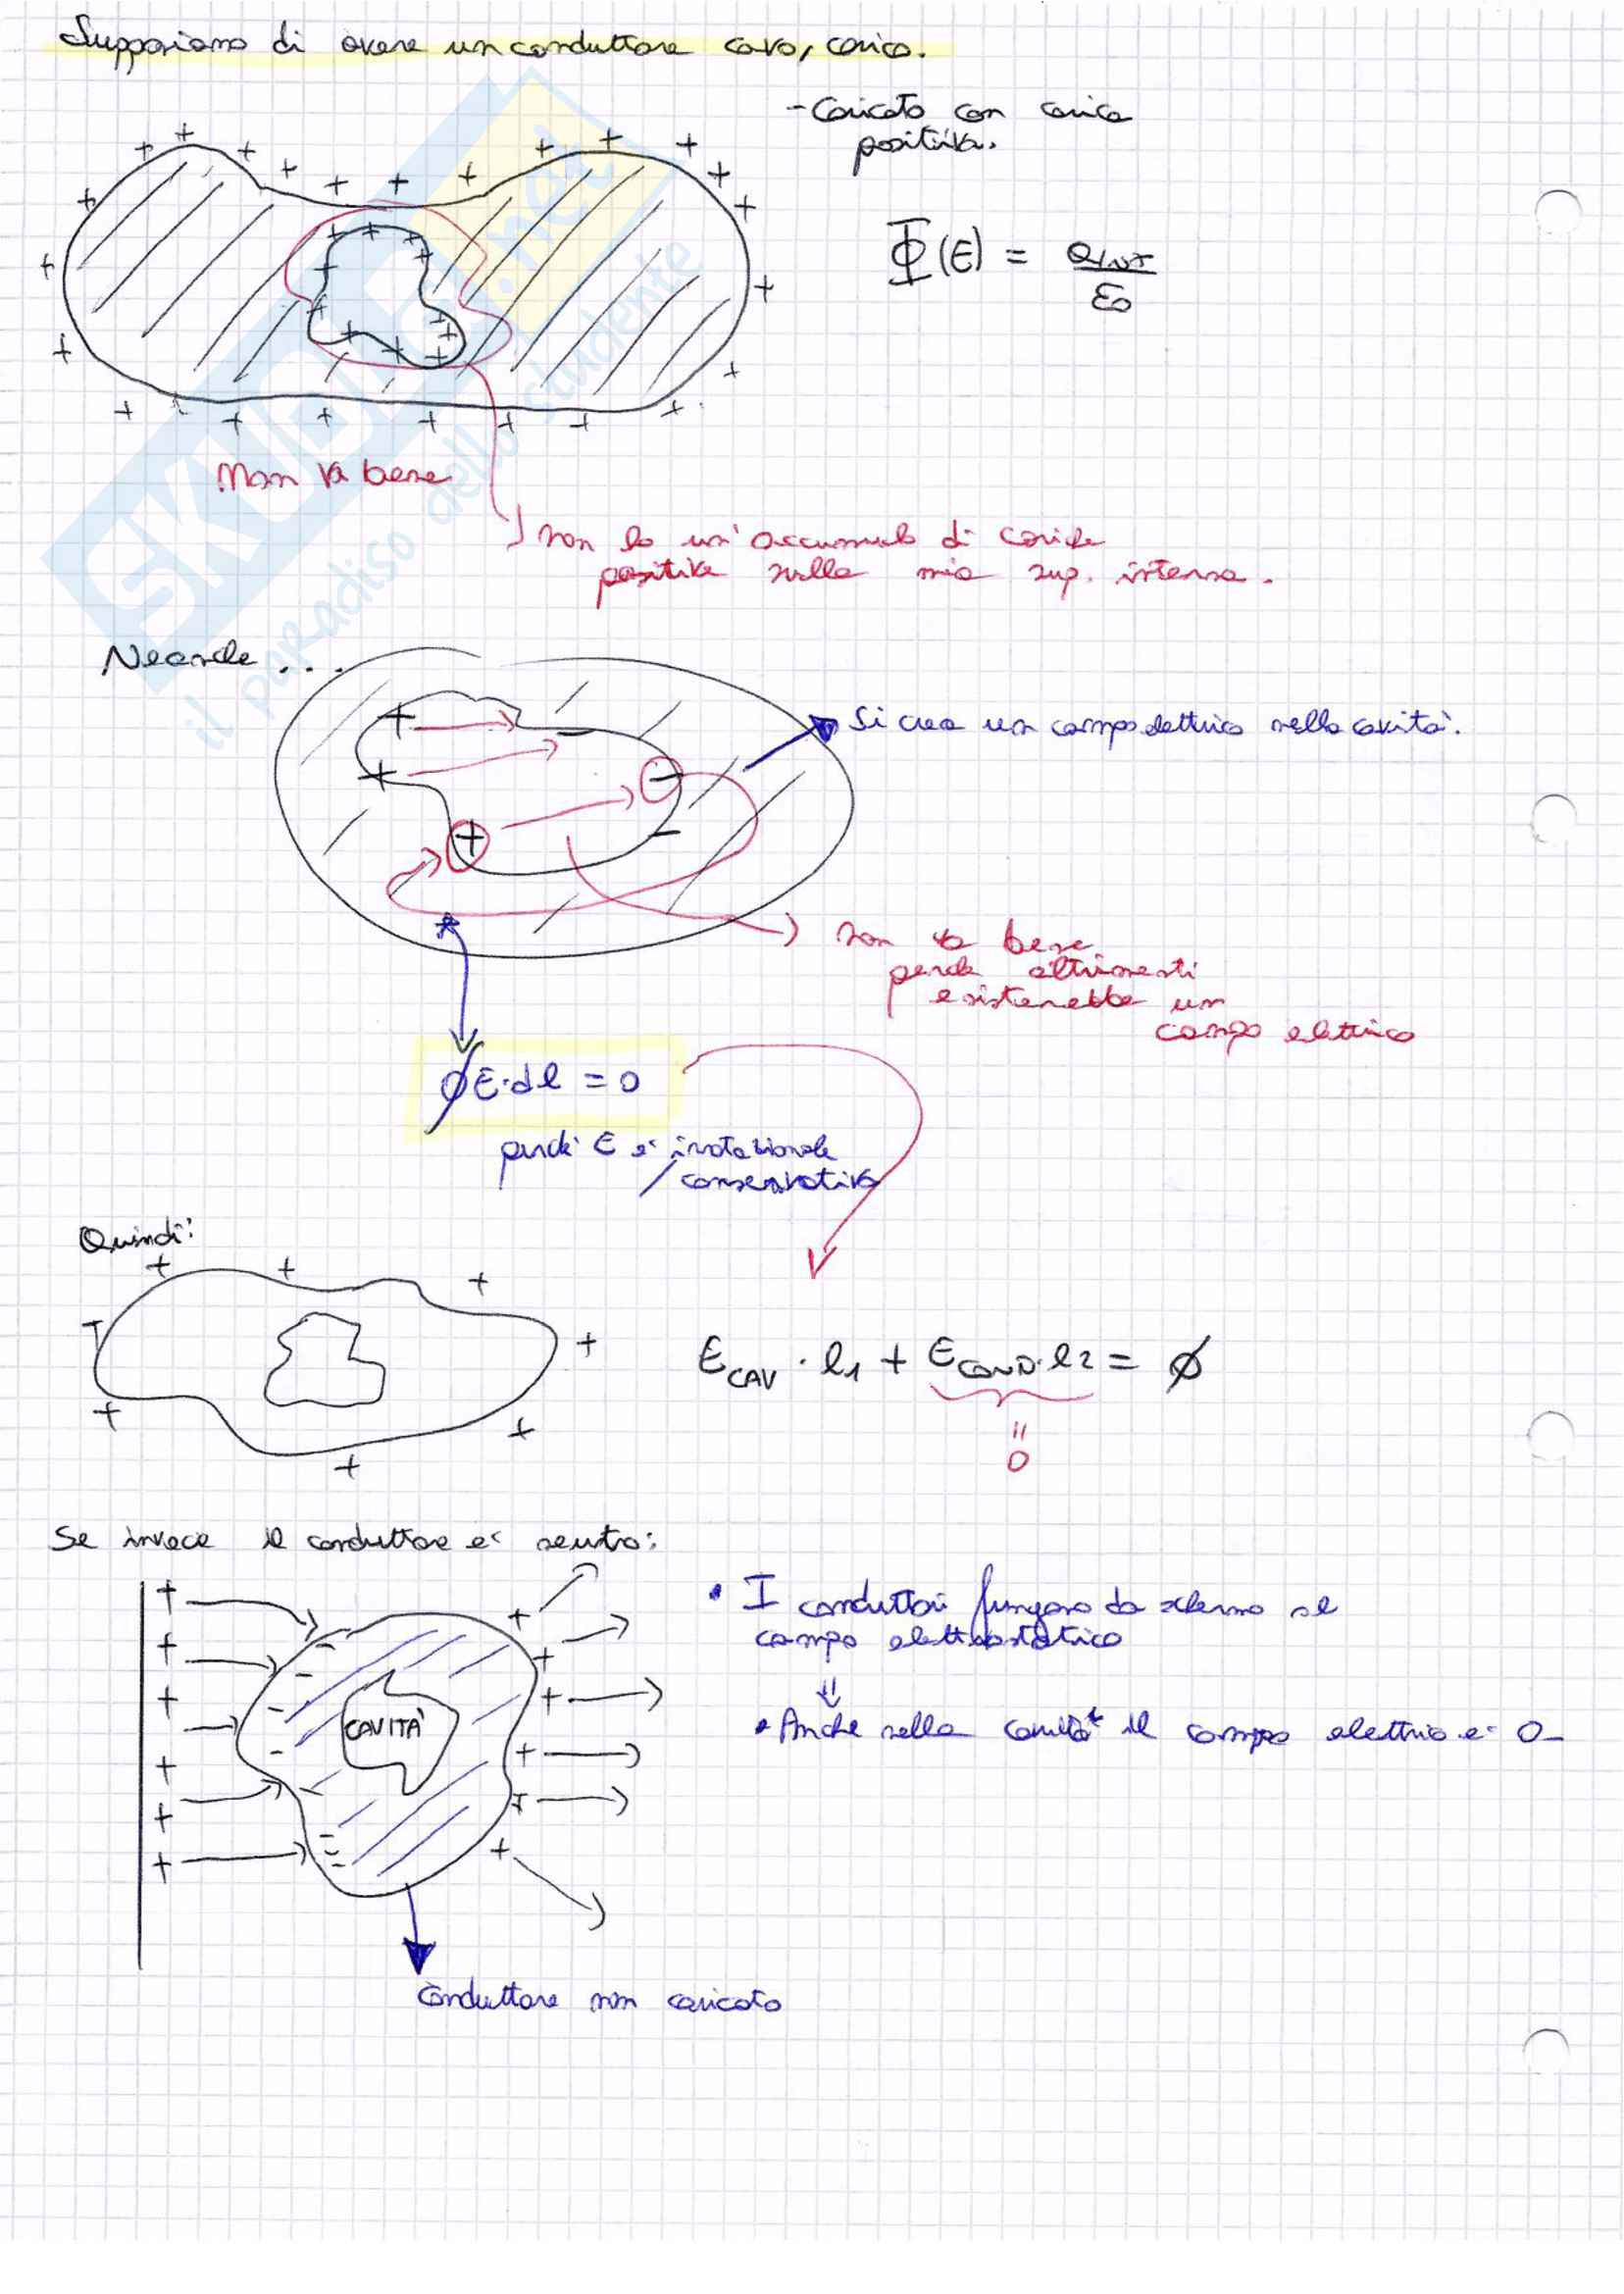 Supponiamo di avere un conduttore cavo, carico.
- Caricato con carica
positiva.
Φ(E) = QINT
ε0
Non va bene
non ho un' accumulo di cariche
positive sulla mia sup. interna.
Neanche ...
Si crea un campo elettrico nella cavità.
non va bene
perchè altrimenti
esisterebbe un
campo elettrico
∮E·dl = 0
perchè E è irrotazionale
/conservativo
Quindi:
ECAV · l1 + ECOND·l2 = ∅
=
0
Se invece il conduttore è neutro:
• I conduttori fungono da schermo al
campo elettrostatico
⇓
• Anche nella cavità il campo elettrico è 0
CAVITÀ
Conduttore non caricato
SKUOLA.net
il paradiso dello studente